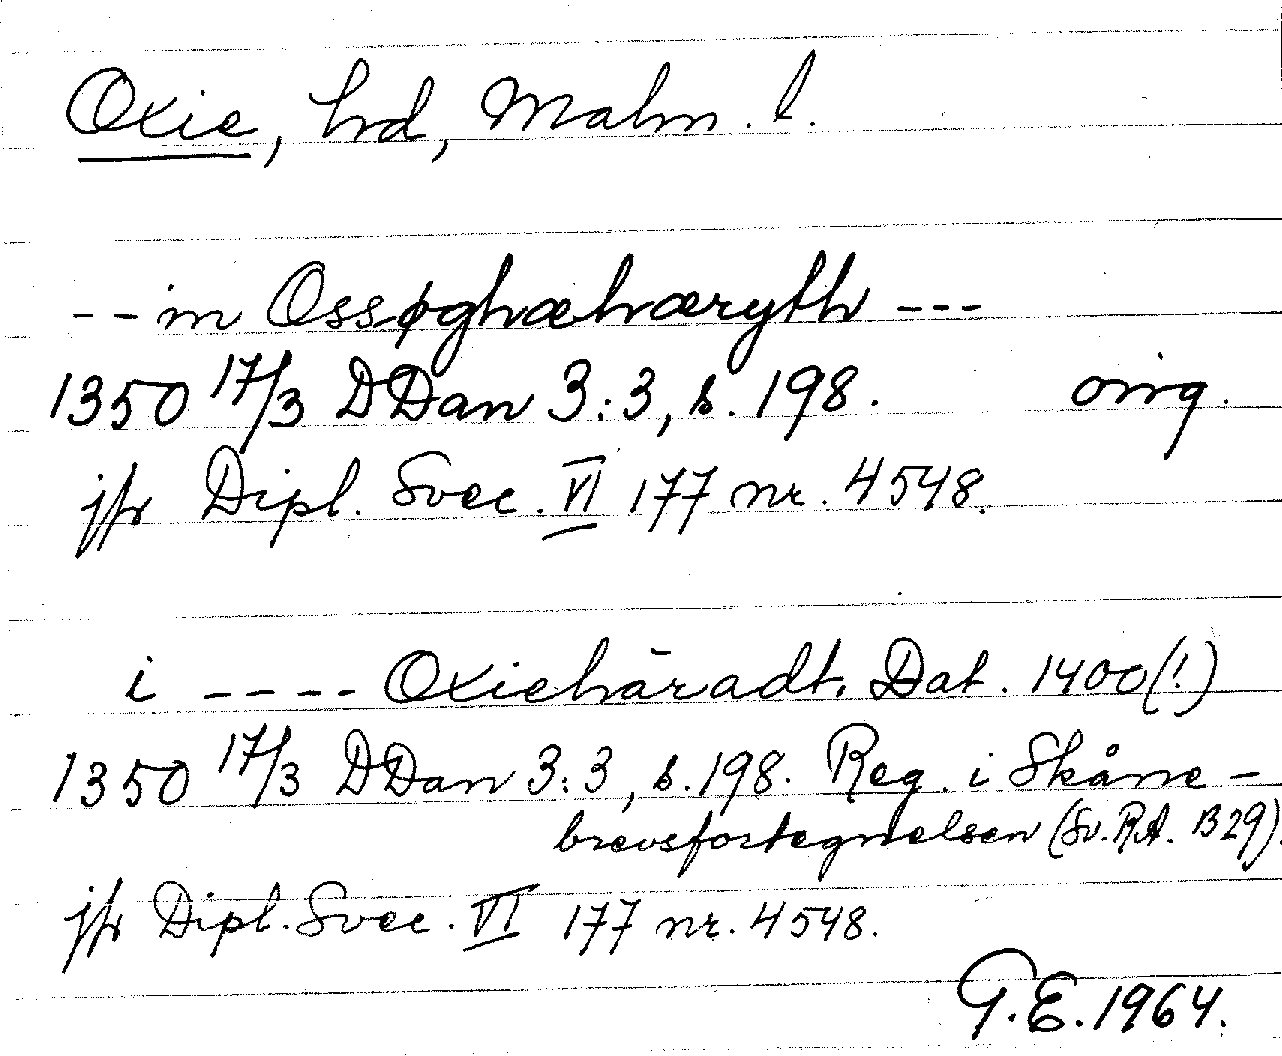 Oxie, hrd, Malm. l.
-- in Ossøghæhæryth ---
1350 17/3 DDan 3:3, s. 198. orig.
jfr Dipl. Svec. VI 177 nr. 4548.
i ---- Oxiehäradt. Dat. 1400(!)
1350 17/3 DDan 3:3, s. 198. Reg. i Skåne-
brevsfortegnelsen (Sv. RA. B29).
jfr Dipl. Svec. VI 177 nr. 4548.
G.E. 1964.